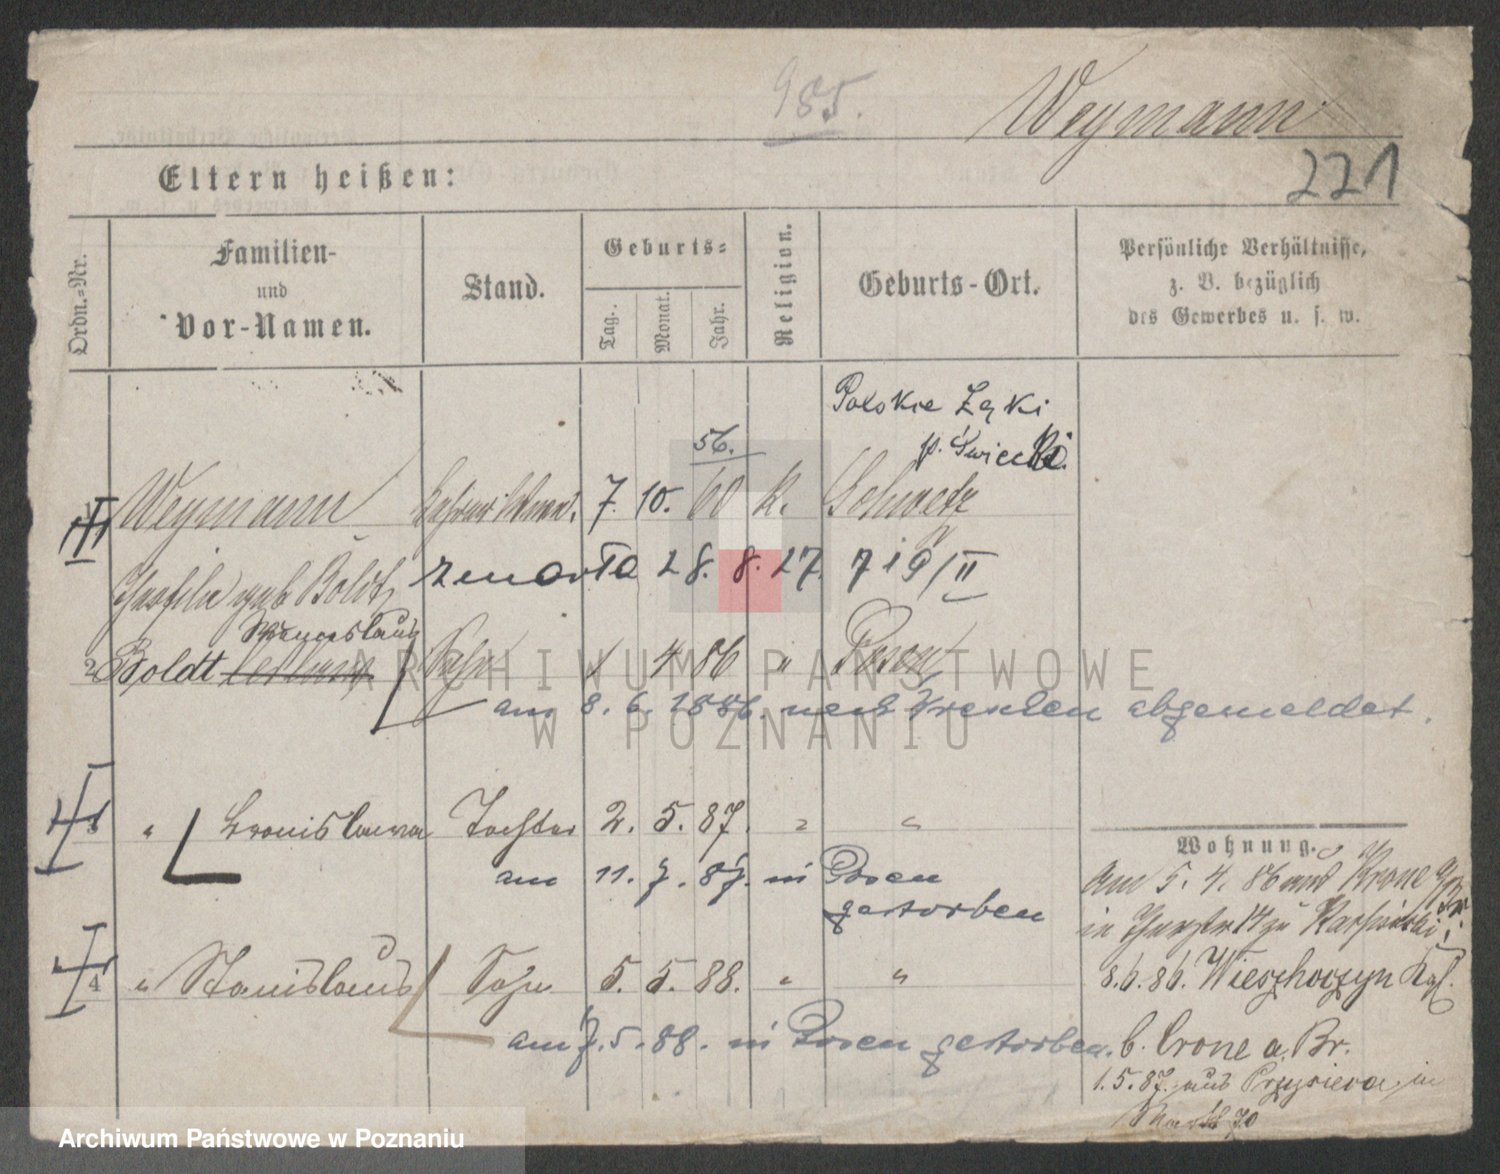 985.
Weymann
221
Eltern heißen:
Ordn.-Nr.
Familien-
und
Vor-Namen.
Stand.
Geburts-
Tag.
Monat.
Jahr.
Religion.
Geburts-Ort.
Persönliche Verhältnisse,
z. B. bezüglich
des Gewerbes u. s. w.
Polskie Łąki
p. Świecki.
56.
Weymann 7. 10. 60 k. Schwetz
geb Boldt zmarła 28. 8. 27. 719/II
Wenceslaus
2 Boldt Sohn 4 86 " Posen
am 8. 6. 1886. nach abgemeldet.
3 " Bronislawa Tochter 2. 5. 87. " "
am 11. 7. 87. in Posen
gestorben
4 " Stanislaus Sohn 5. 5. 88. " "
am 7. 5. 88. in Posen gestorben.
Wohnung.
Am 5. 4. 86 aus Krone
in 14 zu
8.6.86. Wieszhorzyn
b. Crone a. Br.
1. 5. 87. aus in
70
ARCHIWUM PAŃSTWOWE
W POZNANIU
Archiwum Państwowe w Poznaniu